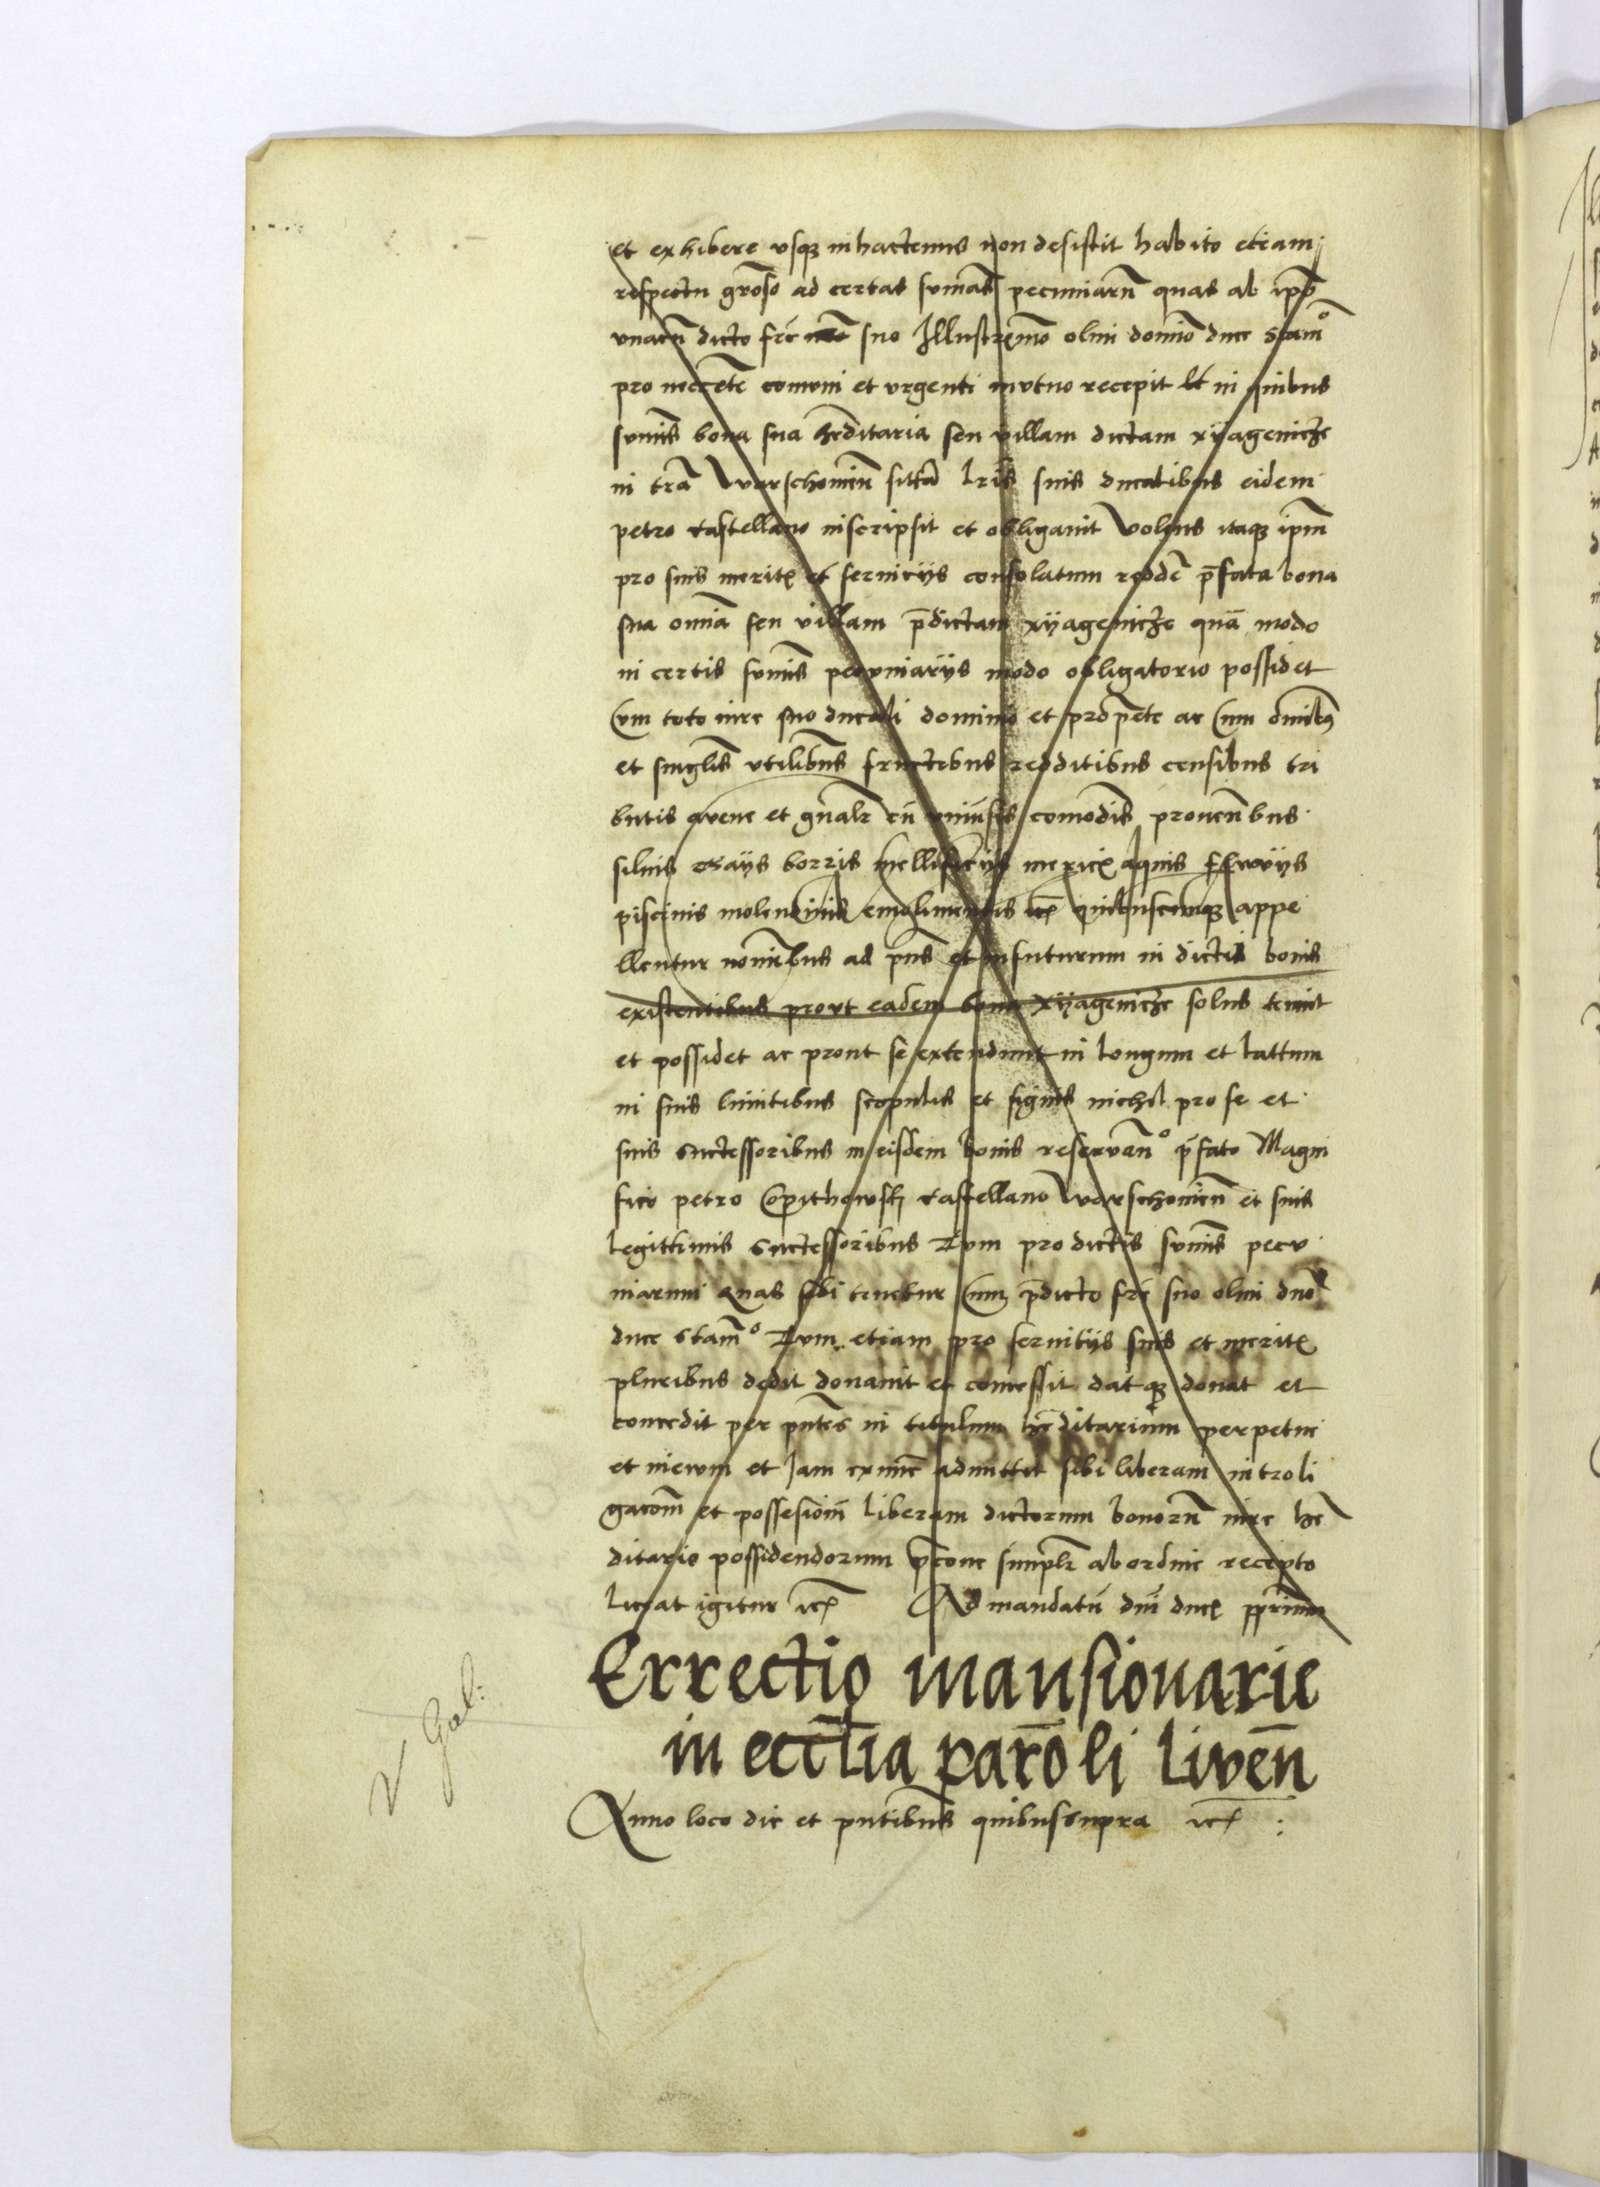 et exhibere usq inhactenus non desistit habito etiam
respectu groso ad certas sumas pecuniaru quas ab ipo
unacu dicto fre suo Illustrimo olim domio duce Stamo
pro necetate comuni et urgenti mutuo recepit et in quibus
sumis bona sua hreditaria seu villam dictam xyagenicze
in tra Warschouien sitta lris suis ducalibus eidem
petro castellano inscripsit et obligauit Volens itaq ipm
pro suis meritis et seruicijs consolatum redde pfata bona
sua omia seu villam pdictam xyagenicze qua modo
in certis sumis pecuniarijs modo obligatorio possidet
Cum toto iure suo ducali dominio et prop̃ete ac Cum omibus
et singlis utilibus fructibus redditibus censibus tri
butis avene et gnalr cu uniusis comodis prouenbus
siluis gaijs borris mellificijs mericis aquis fluvijs
piscinis molendinis emolimentis etc quibuscunq appe
llentur nomibus ad pns et infuturum in dictis bonis
existentibus prout eadem bona xyagenicze solus tenuit
et possidet ac prout se extendunt in longum et lattum
in suis limitibus scopulis et signis nichil pro se et
suis successoribus in eisdem bonis reseruano pfato Magni
fico petro Copithowsky castellano Warschouien et suis
legittimis successoribus Tum pro dictis sumis pecu
niarum quas sibi tenetur Cum pdicto fre suo olim dno
duce Stamo Tum etiam pro seruitijs suis et meritis
pluribus dedit donauit et concessit datq donat et
concedit per pntes in titulum hreditarium perpetue
et in ewm et Jam exnunc admittit sibi liberam introli
gacom et possesioni liberam dictorum bonoru iure he
ditario possidendorum pcone simplr ab ordine recepto
liceat igitur etc Ad mandatu dni ducis pprium
Errectio mansionarie
in eccl̃ia parõli liveñ
V Gal:
Anno loco die et pntibus quibussupra etc :